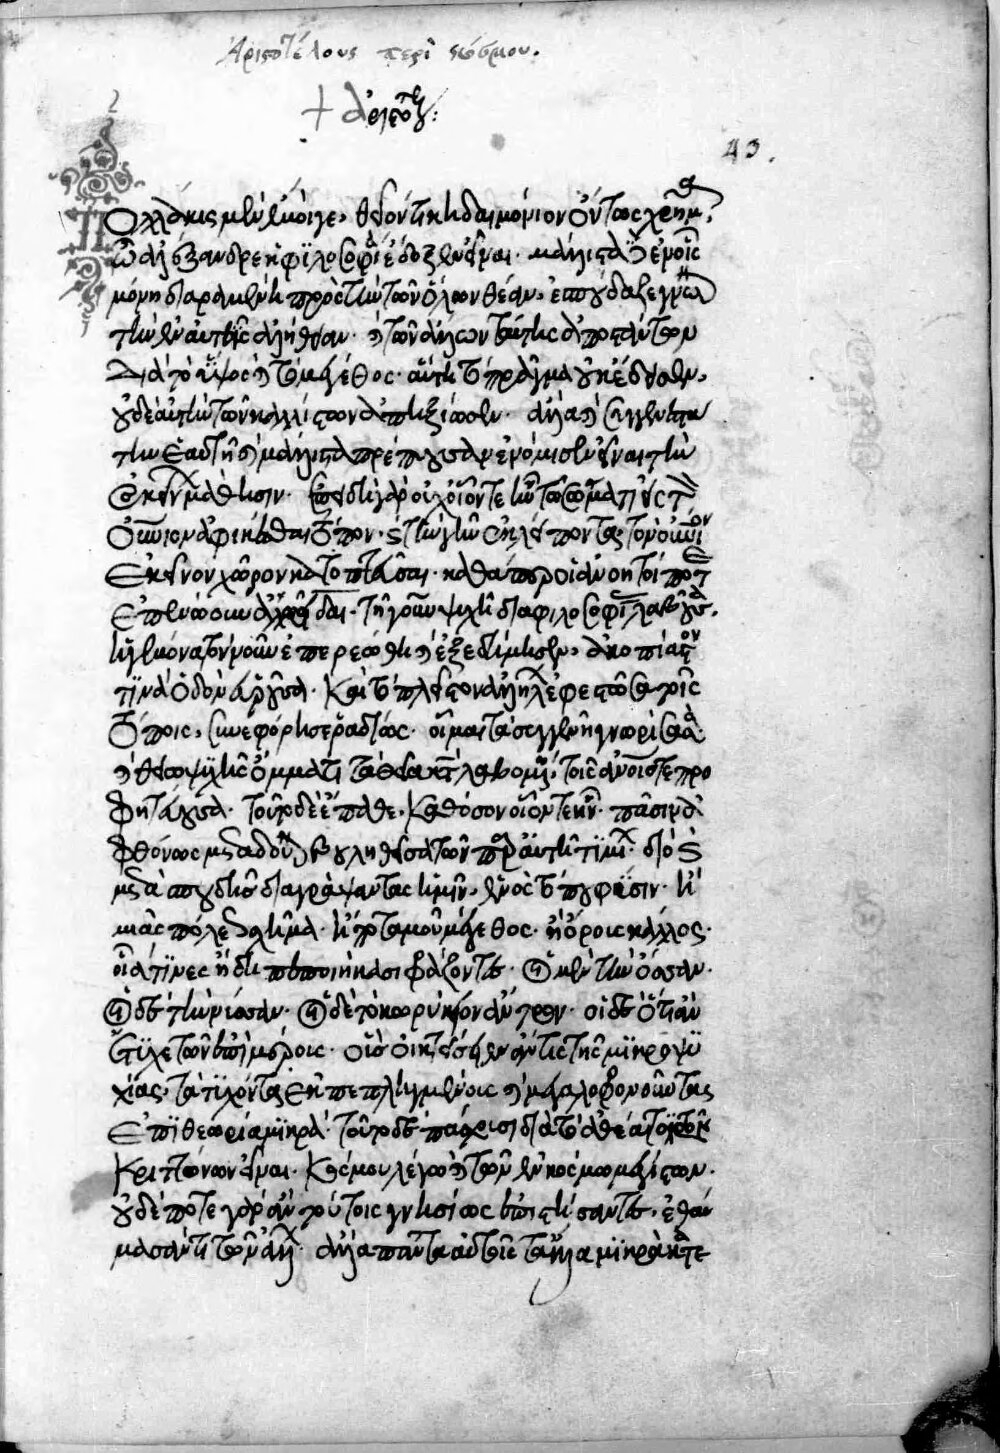 Ἀριστοτέλους περὶ κόσμου.
+ ἀριστοτέλ:
43.
Πολλάκις μὲν ἔμοιγε, θεῖόν τι καὶ δαιμόνιον ὄντως χρῆμα,
ὦ ἀλέξανδρε ἡ φιλοσοφία ἔδοξεν εἶναι. μάλιστα δὲ ἐν οἷς
μόνη διαραμένη πρὸς τὴν τῶν ὅλων θέαν, ἐσπούδαξε γνῶναι
τὴν ἐν αὐτοῖς ἀλήθειαν. καὶ τῶν ἄλλων ταύτης ἀποστάντων
διὰ τὸ ὕψος καὶ τὸ μέγεθος. αὕτη τὸ πρᾶγμα οὐκ ἔδεισεν,
οὐδὲ αὑτὴν τῶν καλλίστων ἀπηξίωσεν. ἀλλὰ καὶ συγγενεστά
την ἑαυτῇ καὶ μάλιστα πρέπουσαν ἐνόμισεν εἶναι τὴν
ἐκείνων μάθησιν. ἐπειδὴ γὰρ οὐχ οἷόν τε ἦν τῷ σώματι εἰς τὸν
οὐράνιον ἀφικέσθαι τόπον. καὶ τὴν γῆν ἐκλιπόντας τὸν οὐράνιον
ἐκεῖνον χῶρον κατοπτεῦσαι. καθάπερ οἱ ἀνόητοί ποτε
ἐπενόουν ἀλωάδαι. ἡ γοῦν ψυχὴ διὰ φιλοσοφίας λαβοῦσα
ἡγεμόνα τὸν νοῦν ἐπεραιώθη καὶ ἐξεδήμησεν, ἀκοπίαστον
τινὰ ὁδὸν εὑροῦσα. καὶ τὰ πλεῖστον ἀλλήλων ἀφεστῶτα τοῖς
τόποις, συνεφόρησε ῥᾳδίως. οἶμαι τὰ συγγενῆ γνωρίσασα.
καὶ θείῳ ψυχῆς ὄμματι τὰ θεῖα καταλαβομένη, τοῖς ἀνθρώποις τε προ
φητεύουσα. τοῦτο δὲ ἔπαθε, καθόσον οἷόν τε ἦν. πᾶσιν ἀ
φθόνως μεταδοῦναι βουληθεῖσα τῶν παρ' αὐτῇ τιμίων. διὸ καὶ
μετὰ σπουδῆς διαγράψαντας ἡμῖν, ἑνὸς τόπου φύσιν. ἢ
μιᾶς πόλεως σχῆμα. ἢ ποταμοῦ μέγεθος. ἢ ὄρους κάλλος.
οἷά τινες ἤδη πεποιήκασι φράζοντες. οἱ μὲν τὴν ὄσσαν.
οἱ δὲ τὴν νύσσαν. οἱ δὲ τὸ κωρύκιον ἄντρον. οἱ δὲ ὁτιοῦν
ἔτυχε τῶν ἐπὶ μέρους. οἰκτείσειεν ἄν τις τῆς μικροψυ
χίας. τὰ τυχόντα ἐκπεπληγμένους καὶ μεγαλοφρονοῦντας
ἐπὶ θεωρίᾳ μικρᾷ. τοῦτο δὲ πάσχουσι διὰ τὸ ἀθέατοι τῶν
κρειττόνων εἶναι. κόσμου λέγω καὶ τῶν ἐν κόσμῳ μεγίστων.
οὐδέποτε γὰρ ἂν τούτοις γνησίως ἐπιστήσαντες, ἐθαύ
μασάν τι τῶν ἄλλων. ἀλλὰ πάντα αὐτοῖς τὰ ἄλλα μικρὰ κατε